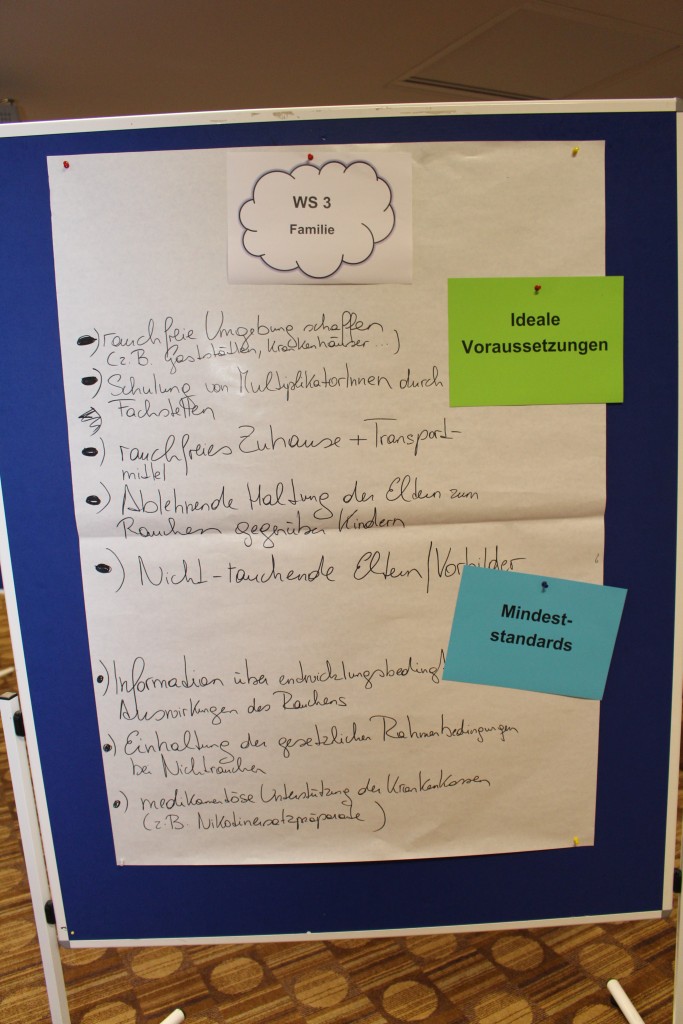 WS 3
Familie
Ideale
Voraussetzungen
●) rauchfreie Umgebung schaffen
(z.B. Gaststätten, Krankenhäuser ...)
●) Schulung von MultiplikatorInnen durch
Fachstellen
●) rauchfreies Zuhause + Transport-
mittel
●) Ablehnende Haltung der Eltern zum
Rauchen gegenüber Kindern
●) Nicht-rauchende Eltern/Vorbilder
Mindest-
standards
●) Information über entwicklungsbedingt
Auswirkungen des Rauchens
●) Einhaltung der gesetzlichen Rahmenbedingungen
bei Nichtrauchen
●) medikamentöse Unterstützung der Krankenkassen
(z.B. Nikotinersatzpräparate)